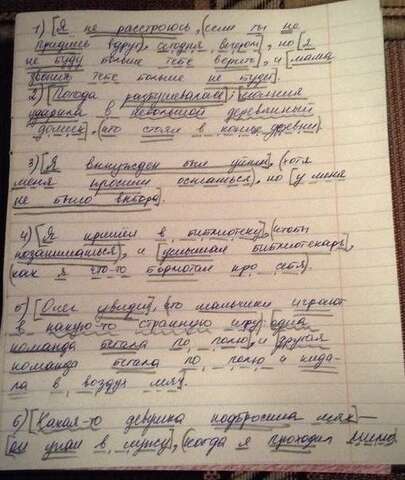 1) [Я не расстроюсь, (если ты не
придёшь вдруг, сегодня, вечером), но [я
не буду больше тебе верить], и [мама
звонить тебе больше не будет].
2) [Погода разбушевалась]; [молния
ударила в небольшой деревянный
домик], (что стоял в конце деревни).
3) [Я вынужден был уйти], (хотя
меня просили остаться), но [у меня
не было выбора].
4) [Я пришёл в библиотеку], (чтобы
позаниматься), и [услышал библиотекарь],
(как я что-то бормотал про себя).
5) [Олег увидел], что мальчики играют
в какую-то странную игру: [одна
команда бегала по полю], и [другая
команда бегала по полю и кида-
ла в воздух мяч].
6) [Какая-то девушка подбросила мяч]—
[он упал в лужу], (когда я проходил мимо)